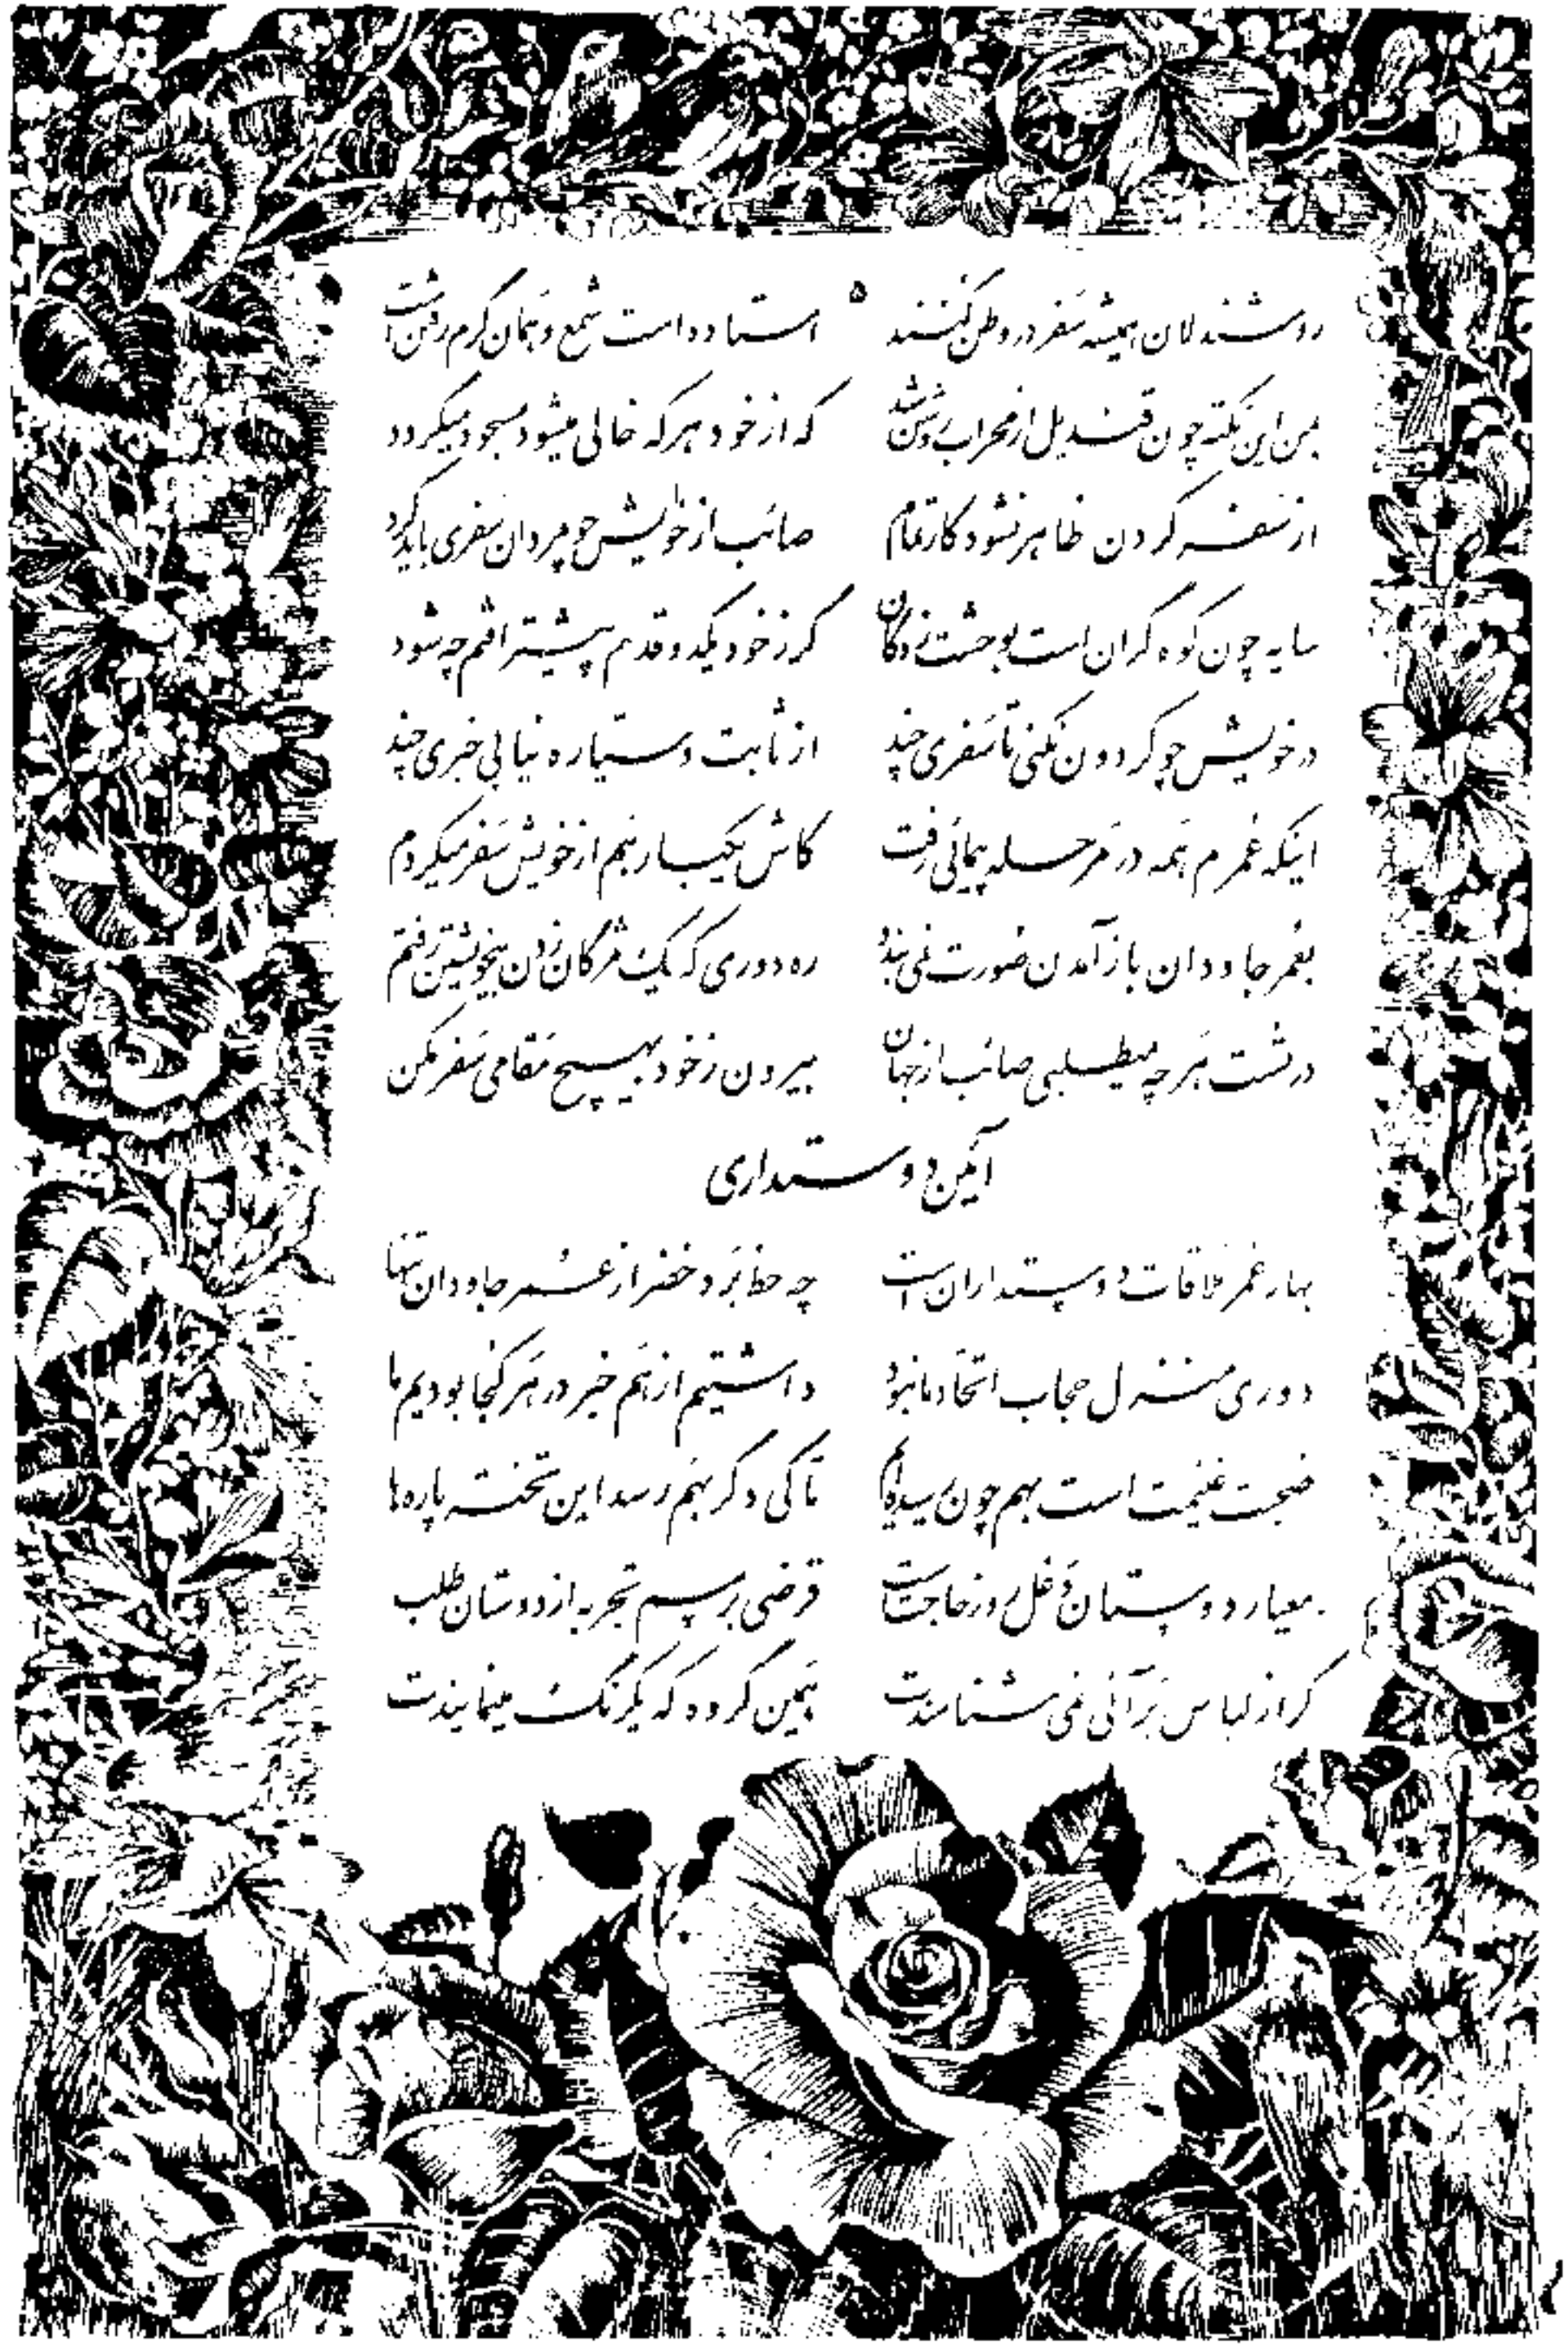 ۵
روشندلان همیشه سفر در وطن کنند استاده است شمع و همان گرم رفتن است
بمن این نکته چون قندیل از محراب روشن شد که از خود هر که خالی میشود مسجود میگردد
از سفر کردن ظاهر نشود کار تمام صائب از خویش چو مردان سفری باید کرد
سایه چون کوه گران است بوحشت زدگان گر ز خود یکدو قدم پیشتر افتم چه شود
در خویش چو گردون نکنی تا سفری چند از ثابت و سیاره نیابی خبری چند
اینکه عمرم همه در مرحله پیمائی رفت کاش یکبار هم از خویش سفر میکردم
بعمر جاودان باز آمدن صورت نمی بندد ره دوری که یک مژگان زدن بیخویشتن رفتم
در تست هر چه میطلبی صائب از جهان بیرون ز خود بهیچ مقامی سفر مکن
آئین دوستداری
بهار عمر ملاقات دوستداران است چه حظ برد خضر از عمر جاودان تنها
دوری منزل حجاب اتحاد ما نبود داشتیم از هم خبر در هر کجا بودیم ما
صحبت غنیمت است بهم چون رسیده‌ایم تا کی دگر بهم رسد این تخته پاره‌ها
معیار دوستان دغل روز حاجت است قرضی برسم تجربه از دوستان طلب
گر از لباس برآئی نمی شناسندت همین گروه که یکرنگ مینمایندت